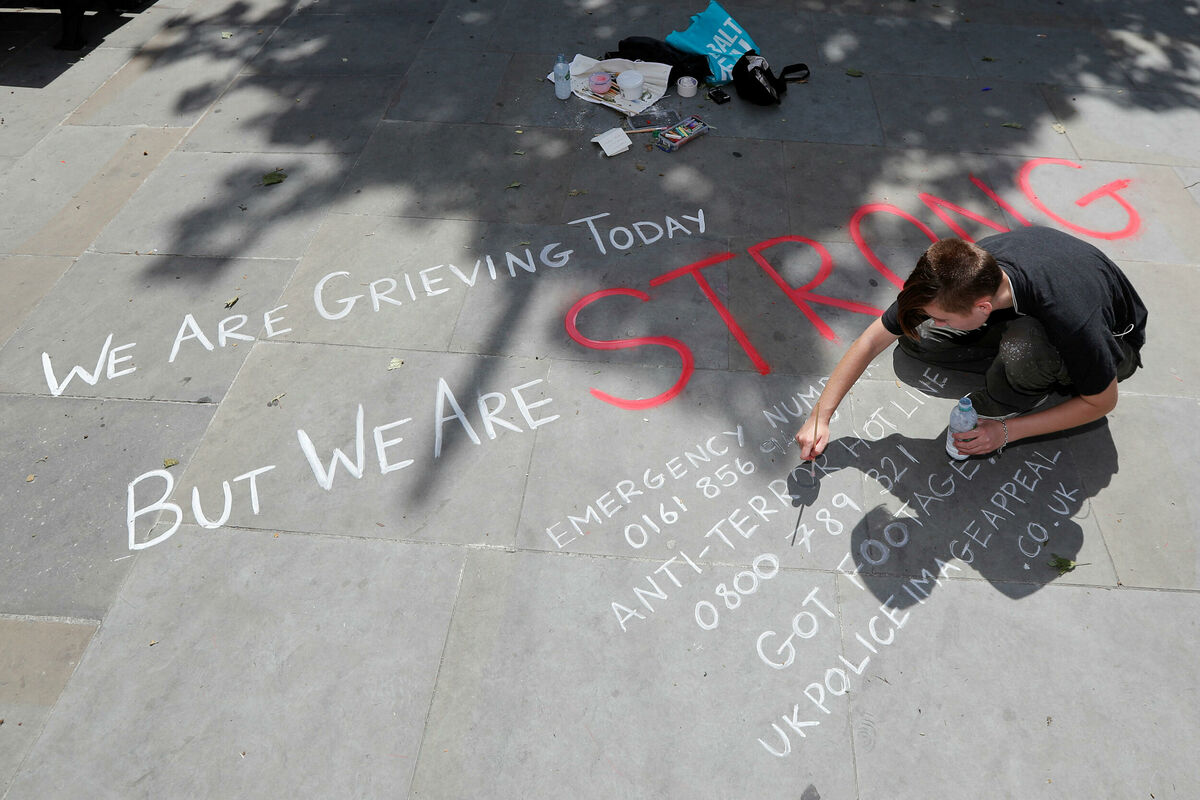 We Are Grieving Today
But We Are STRONG
EMERGENCY
0161 856
ANTI-TERROR HOTLINE
0800 789 321
GOT FOOTAGE?
UKPOLICEIMAGEAPPEAL
.CO.UK